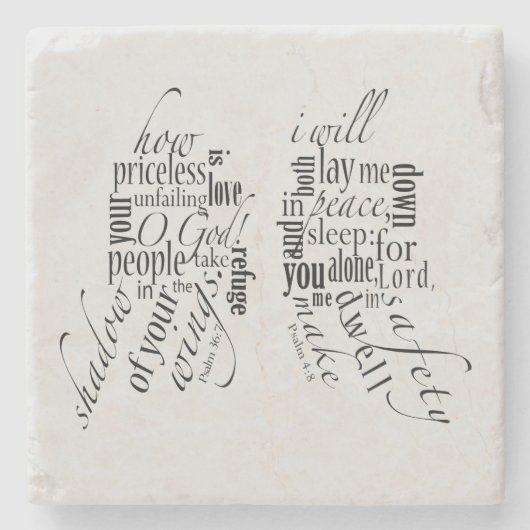 how
priceless is
your unfailing love
O God!
people take refuge
in the
shadow
of your
wings.
Psalm 36:7
i will
both lay me down
in peace,
and sleep: for
you alone, Lord,
make me dwell in
safety
Psalm 4:8